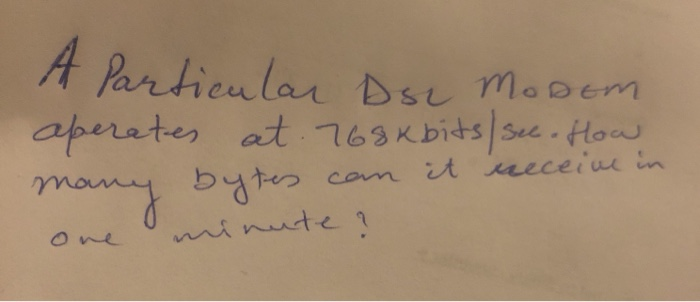 A Particular DSL MODEM
operates at 768Kbits/sec. How
many bytes can it receive in
one minute?